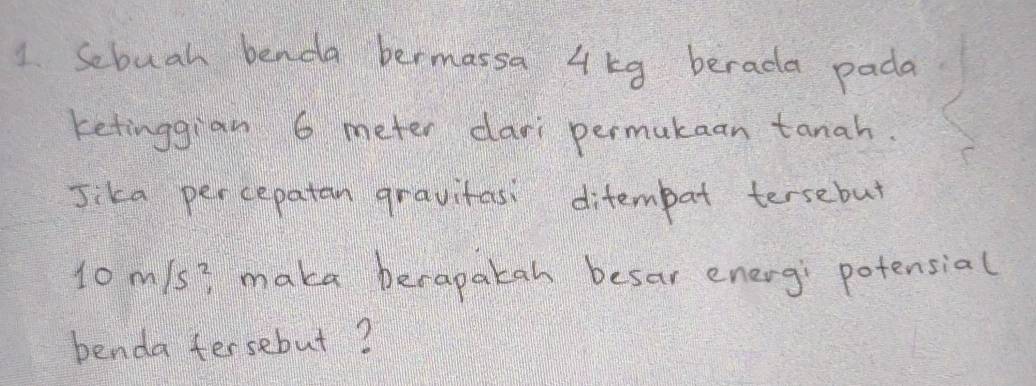 1. Sebuah benda bermassa 4 kg berada pada
ketinggian 6 meter dari permukaan tanah.
Jika percepatan gravitasi ditempat tersebut
10 m/s², maka berapakah besar energi potensial
benda tersebut?